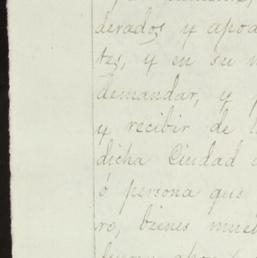 derados y apod
tes, y en su n
demandar, y p
y recibir de l
dicha Ciudad
ó persona que
ro, bienes mue